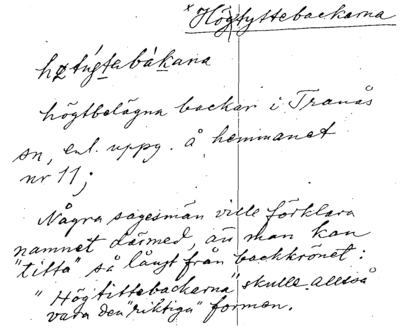 x Högtyttebackarna
høtýgtabàkana
högtbelägna backar i Tranås
sn, enl. uppg. å hemmanet
nr 11;
Några sagesmän ville förklara
namnet därmed, att man kan
"titta" så långt från backkrönet:
"Högtittebackarna" skulle alltså
vara den "riktiga" formen.